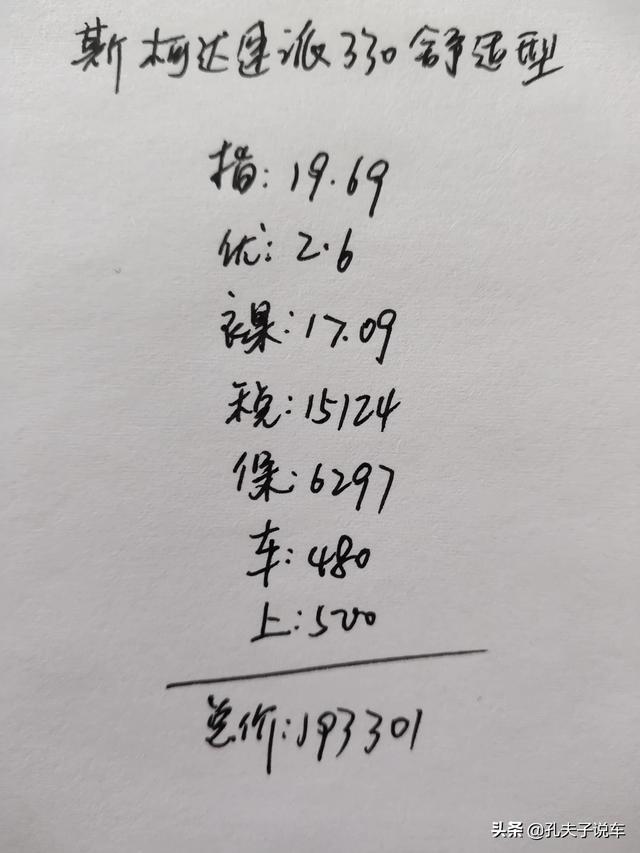 斯柯达速派330舒适型
指:19.69
优:2.6
裸:17.09
税:15124
保:6297
车:480
上:500
总价:193301
头条 @孔夫子说车